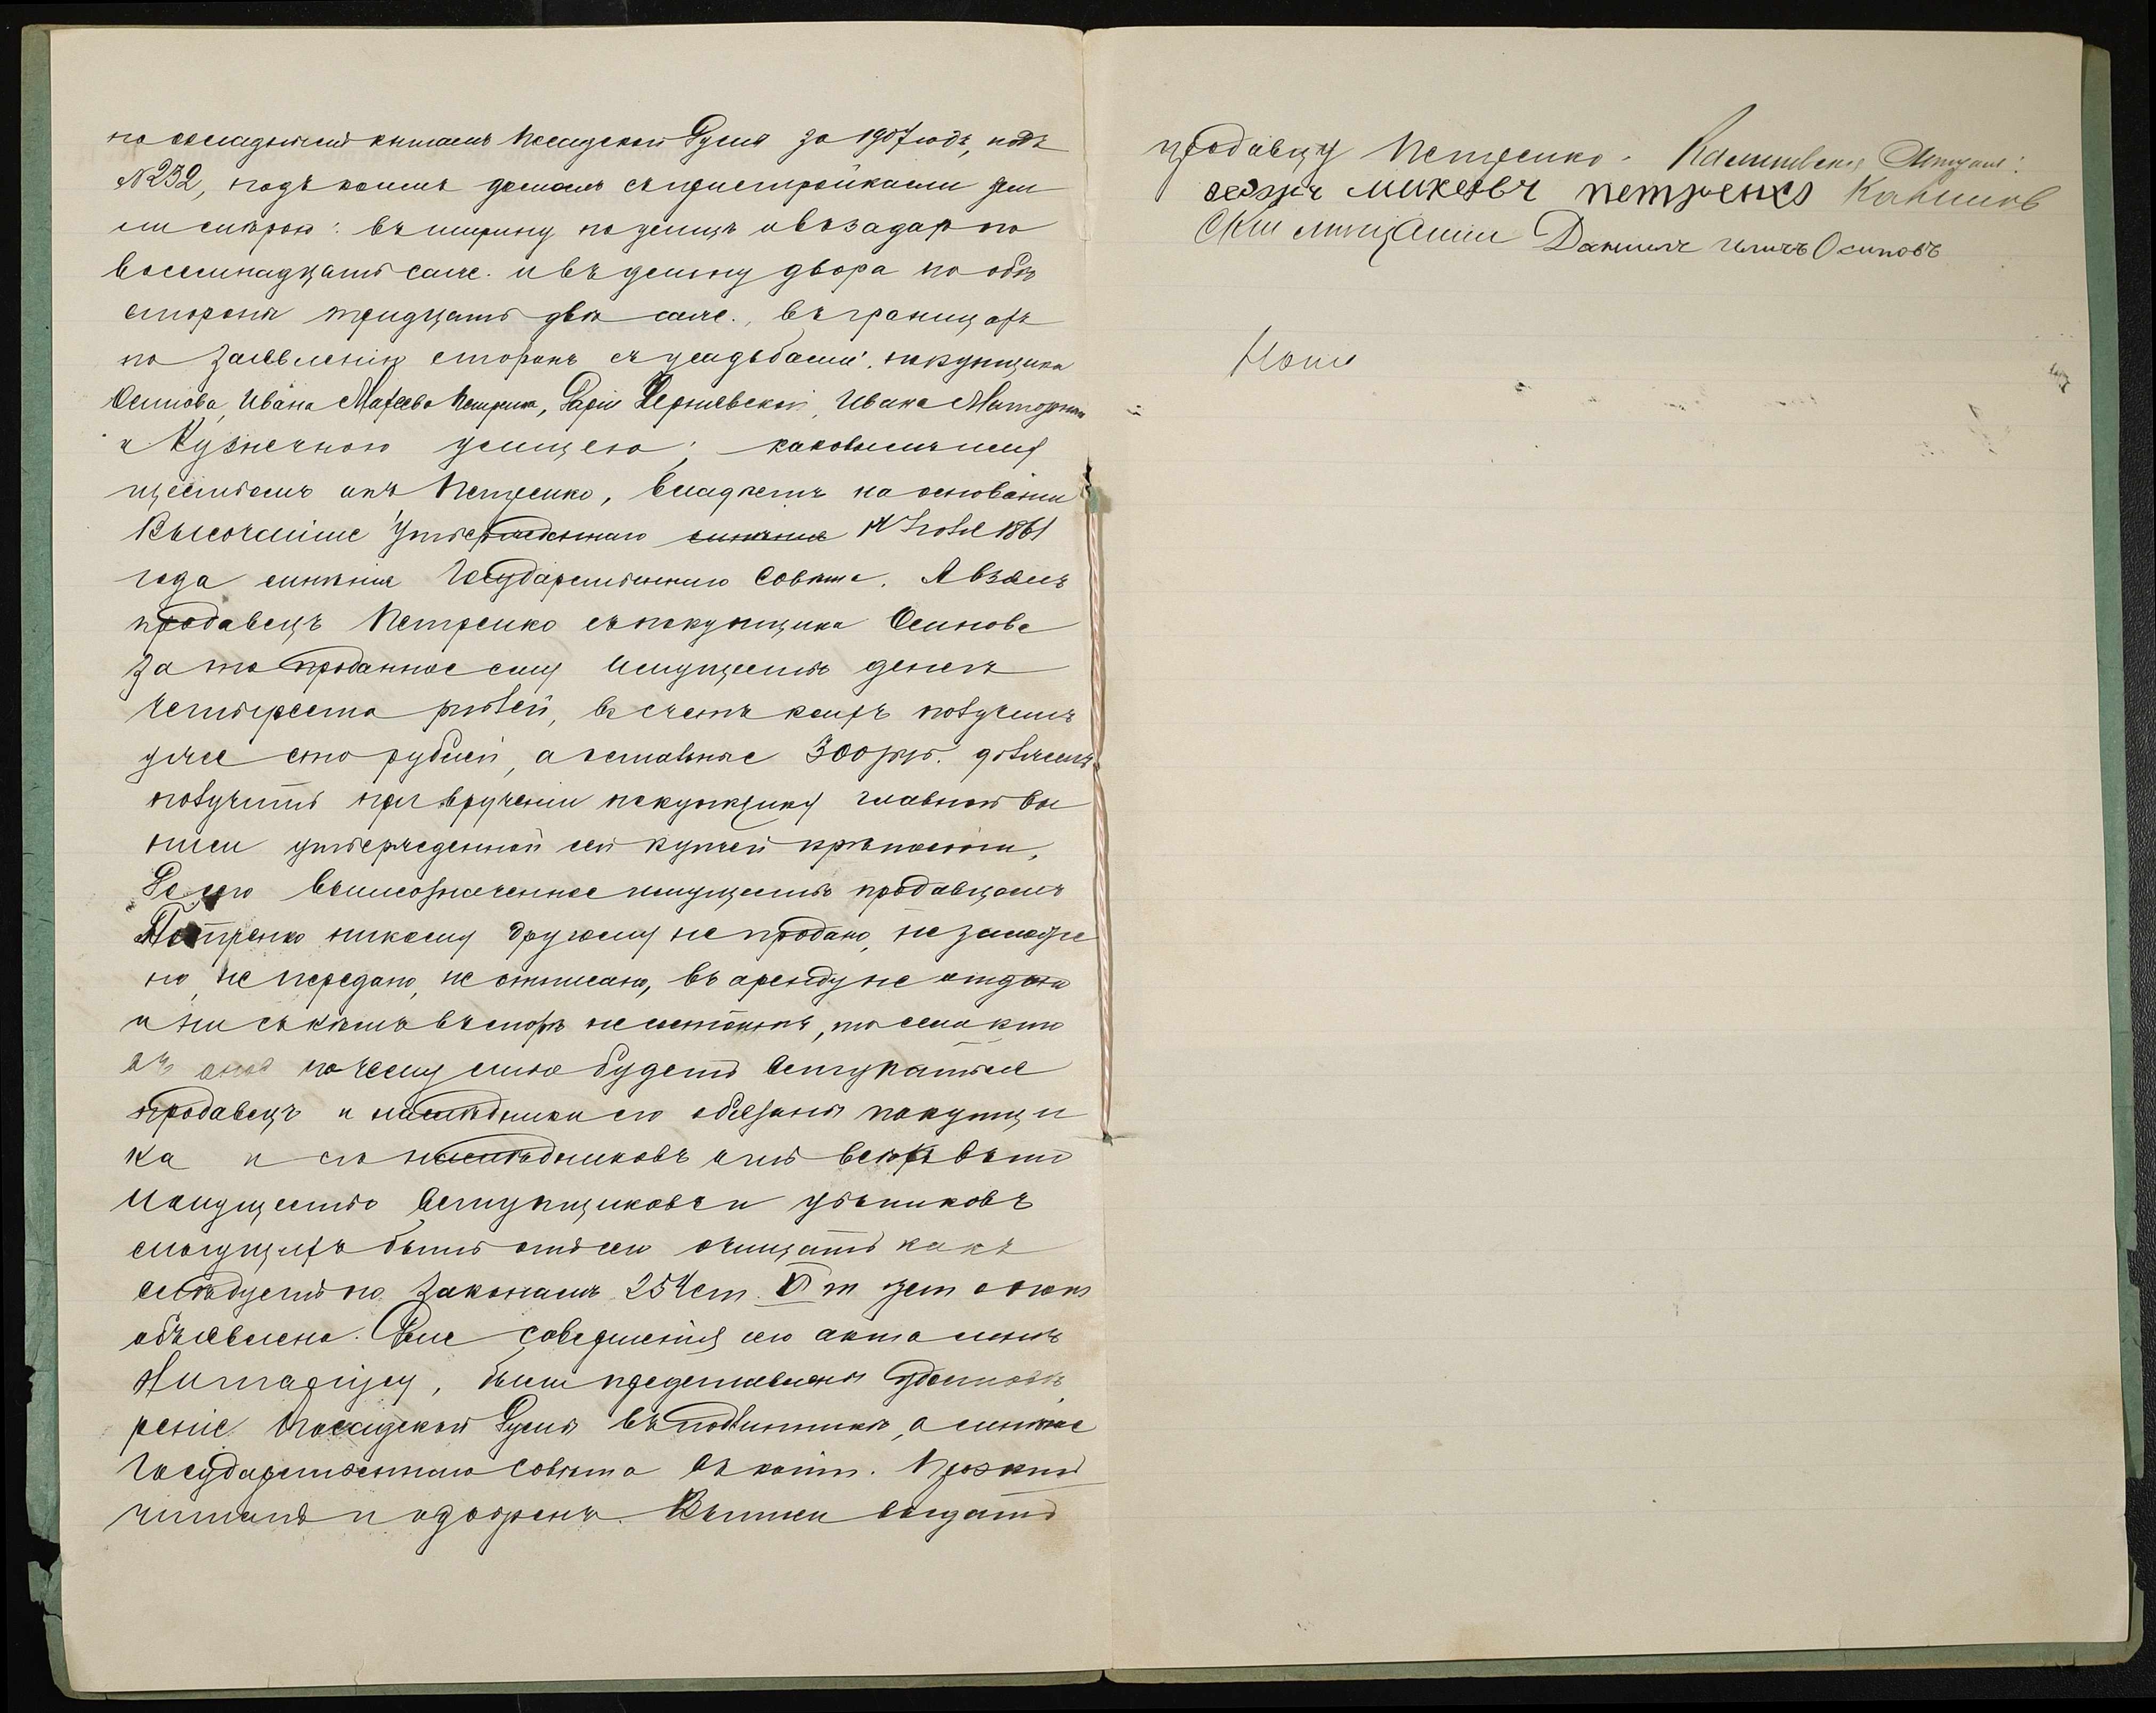 по окладнымъ книгамъ Посадской Думы за 1907 годъ, подъ
№ 232, подъ коимъ домомъ съ пристройками зем
ли мѣрою: въ ширину по улицѣ и взади по
восемнадцати саж. и въ длину двора по обѣ
стороны тридцать двѣ саж., въ границахъ
по заявленію сторонъ съ усадьбами: покупщика
Осипова, Ивана Матѣева Петренка, Дарьи, Ивана
и Кузнечною улицею; каковымъ иму
ществомъ онъ Петренко, владѣетъ на основаніи
Высочайше утвержденнаго мнѣнія 14 1861
года мнѣнія Государственнаго Совѣта. А взялъ
продавецъ Петренко съ покупщика Осипова
за то проданное ему имущество денегъ
четыреста рублей, въ счетъ коихъ получилъ
уже сто рублей, а остальные 300 руб. долженъ
получить при врученіи покупщику главной вы
писи утвержденной сей купчей крѣпости.
До сего вышеозначенное имущество продавцомъ
Петренко никому другому не продано, не заложе
но, не передано, не отписано, въ аренду не отдано
и ни съ кѣмъ въ спорѣ не состоитъ, то если кто
въ оное по чему либо будетъ вступаться
продавецъ и наслѣдники его обязаны покупщи
ка и его наслѣдниковъ отъ всѣхъ въ то
имущество вступщиковъ и убытковъ
могущихъ быть отъ сего очищать какъ
слѣдуетъ по законамъ 254 ст. т
объявлена. Для совершенія сего акта мнѣ
Нотаріусу, были представлены удостовѣ
реніе Посадской Думы въ подлинникѣ, а мнѣніе
Государственнаго Совѣта въ копіи. Проектъ
читанъ и одобренъ. Выпись выдать
продавцу Петренко.
Микеевъ Петренко Каниов
ски мищанин Данилъ Осиповъ